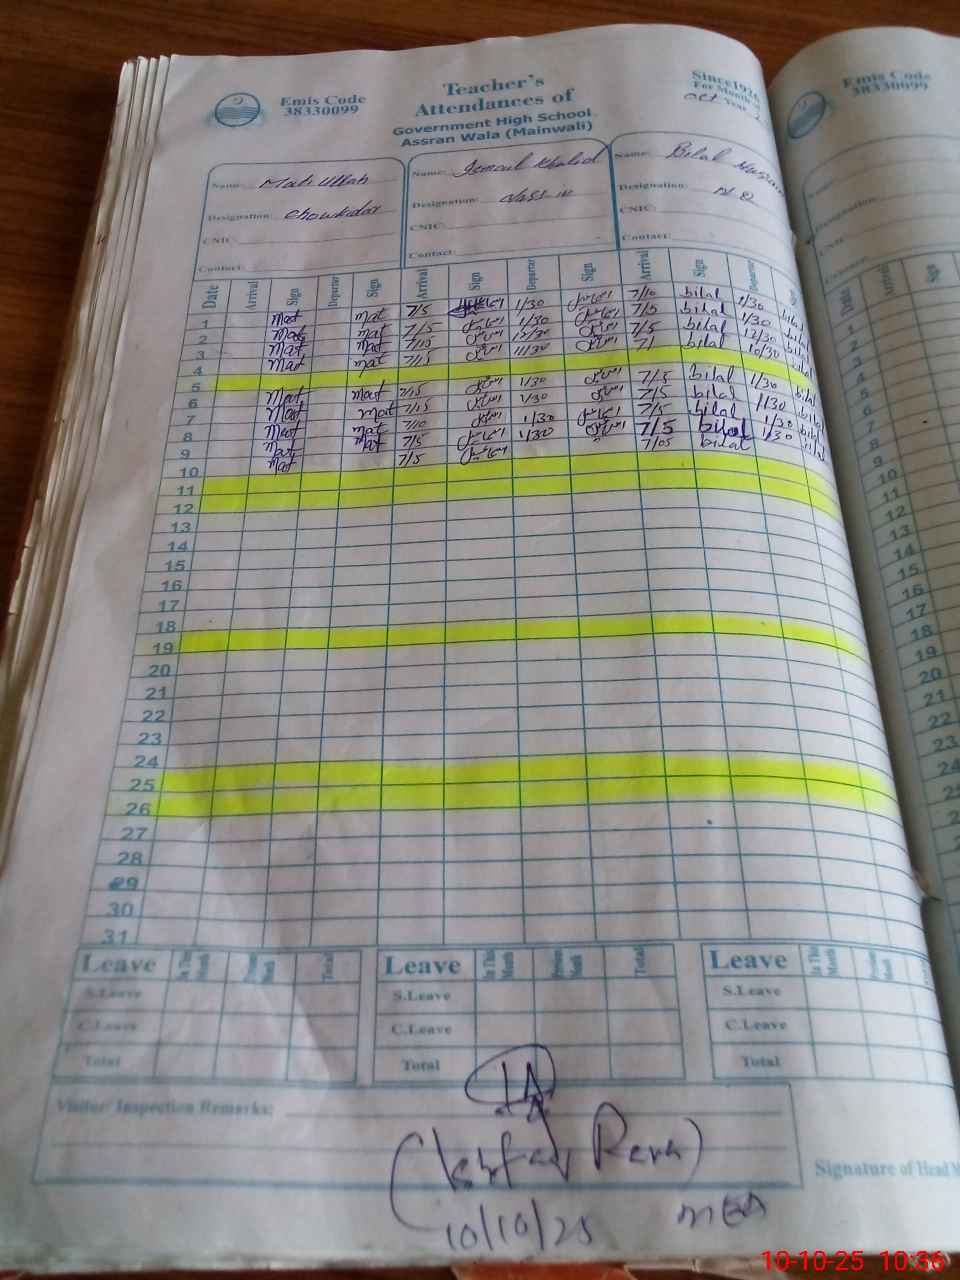 Emis Code
38330099
Teacher's
Attendances of
Government High School
Assran Wala (Mainwali)
Since1926
For Month
Oct Year
Name: Mati Ullah
Designation: Chowkidar
CNIC:
Contact:
Name: Khalid
Designation: Class iv
CNIC:
Contact:
Name: Bilal
Designation: N Q
CNIC:
Contact:
Date Arrival Sign Departure Sign Arrival Sign Departure Sign Arrival Sign Departure Sign
1 Mat Mat 7/5 اسماعیل 1/30 اسماعیل 7/10 bilal 1/30 bilal
2 Mat Mat 7/5 اسماعیل 1/30 اسماعیل 7/5 bilal 1/30 bilal
3 Mat Mat 7/15 اسماعیل 12/30 اسماعیل 7/5 bilal 12/30 bilal
4 Mat Mat 7/15 اسماعیل 11/30 اسماعیل 7/ bilal 10/30 bilal
5
6 Mat Mat 7/15 اسماعیل 1/30 اسماعیل 7/5 bilal 1/30 bilal
7 Mat Mat 7/15 اسماعیل 1/30 اسماعیل 7/5 bilal 1/30 bilal
8 Mat Mat 7/10 اسماعیل 1/30 اسماعیل 7/5 bilal 1/30 bilal
9 Mat Mat 7/5 اسماعیل 1/30 اسماعیل 7/5 bilal 1/30 bilal
10 Mat 7/5 اسماعیل 7/05 bilal
11
12
13
14
15
16
17
18
19
20
21
22
23
24
25
26
27
28
29
30
31
Leave In The Month Total
S.Leave
C.Leave
Total
Leave In The Month Total
S.Leave
C.Leave
Total
Leave In The Month
S.Leave
C.Leave
Total
Visitor/ Inspection Remarks:
Signature of Head
10/10/25 MEA
Emis Code
38330099
Arrival Sign
1
2
3
4
5
6
7
8
9
10
11
12
13
14
15
16
17
18
19
20
21
22
23
24
10-10-25 10:36